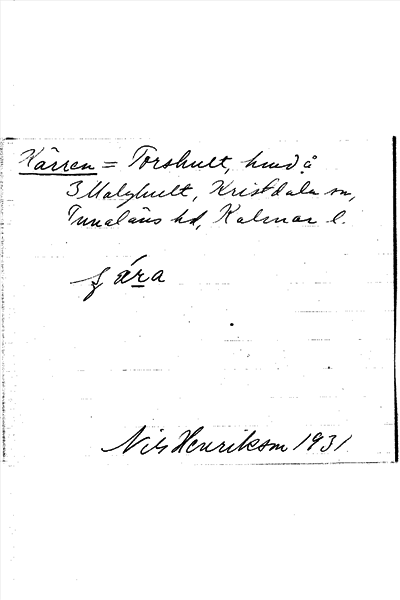 Kärren = Torshult, hmd å
3 Malghult, Kristdala sn,
Tunaläns hd, Kalmar l.
f ära
Nils Henrikson 1931